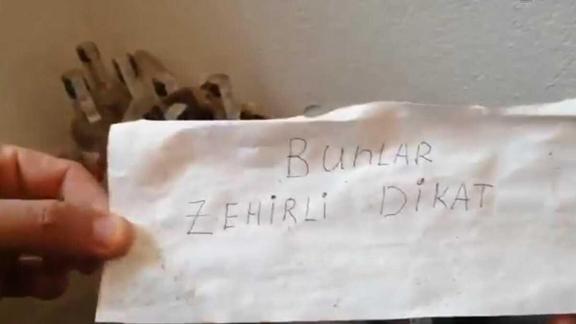 BunLAR
ZEHiRLi DiKAT